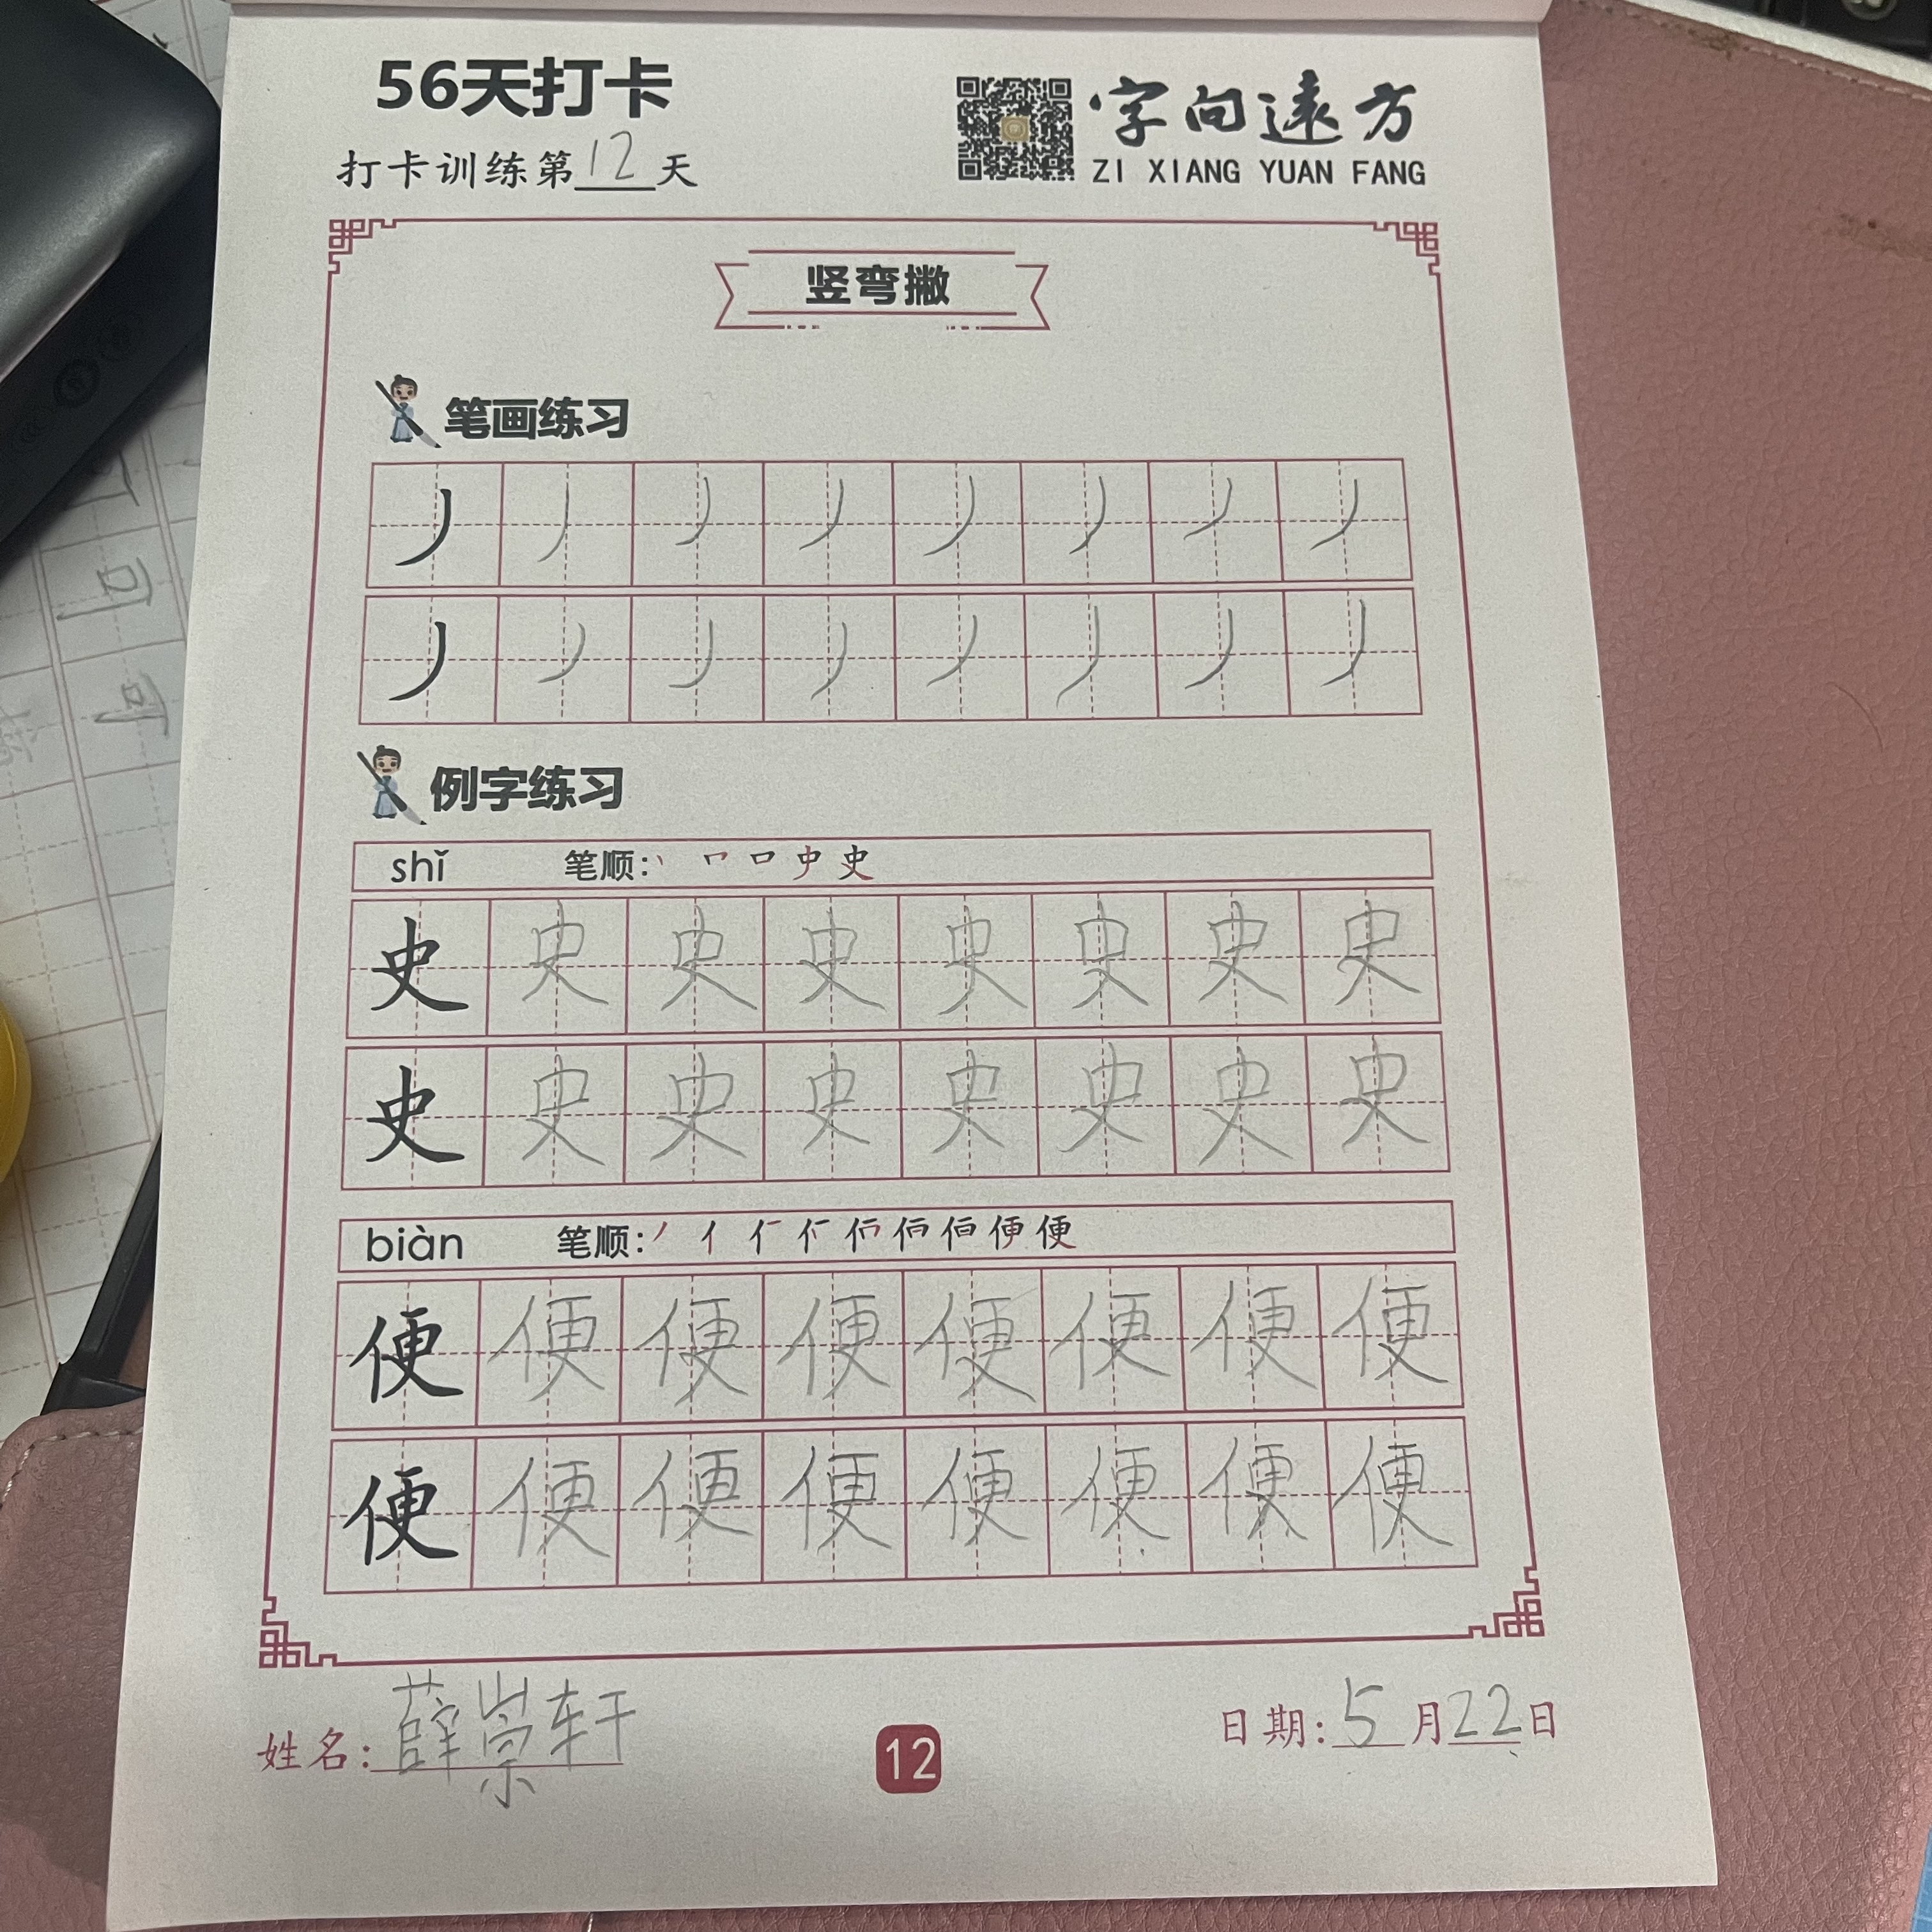 56天打卡
打卡训练第12天
字向远方
ZI XIANG YUAN FANG
竖弯撇
笔画练习
丿 丿 丿 丿 丿 丿 丿 丿
丿 丿 丿 丿 丿 丿 丿 丿
例字练习
shǐ 笔顺: 丨 史
史 史 史 史 史 史 史 史
史 史 史 史 史 史 史 史
biàn 笔顺: 丿 亻 便 便
便 便 便 便 便 便 便 便
便 便 便 便 便 便 便 便
姓名: 薛崇轩
12
日期: 5月22日